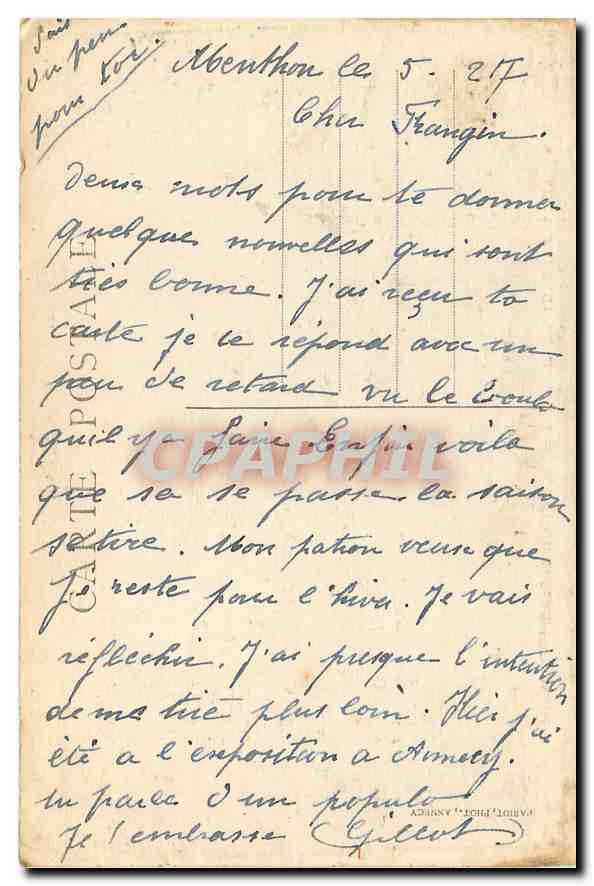 Menthon le 5. 27
Cher Frangin.
deux mots pour te donner
quelque nouvelles qui sont
très bonne. J'ai reçu ta
carte je te répond avec un
peu de retard vu le boulo
quil y a faire Enfin voila
que sa se passe la saison
se tire. Mon patron veux que
Je reste pour l'hiver. Je vais
réfléchir. J'ai presque l'intention
de me tiré plus loin. Hier j'ai
été a l'exposition a Annecy.
tu parle d'un populo
Je t'embrasse
un peu
pour toi.
CARTE POSTALE
PHOT., ANNECY
CPAPHIL